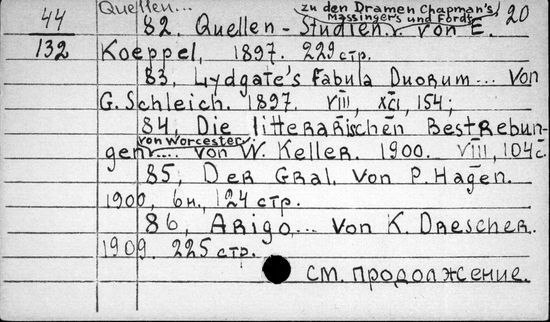 44
132
Quellen...
20
82. Quellen - Studien von E.
zu den Dramen Chapman's,
Massinger's und Fords
Koeppel, 1897. 229 стр.
83, Lydgate's Fabula Duorum... von
G. Schleich. 1897. VIII, XCI, 154;
84, Die litterarischen Bestrebun-
von Worcester
gen.... von W. Keller. 1900. VIII, 104 с.
85, Der Gral. Von P. Hagen.
1900, 6н., 124 стр.
86, Arigo... Von K. Drescher.
1909. 225 стр.
см. продолжение.